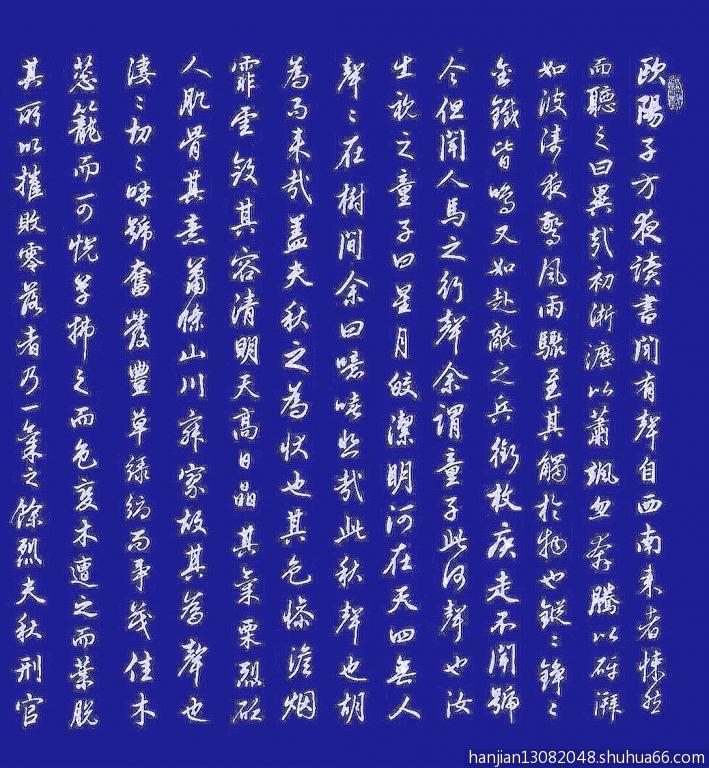 歐陽子方夜讀書聞有聲自西南來者悚然
而聽之曰異哉初淅瀝以蕭颯忽奔騰以砰湃
如波濤夜驚風雨驟至其觸於物也鏦〻錚〻
金鐵皆鳴又如赴敵之兵銜枚疾走不聞號
令但聞人馬之行聲余謂童子此何聲也汝
出視之童子曰星月皎潔明河在天四無人
聲〻在樹間余曰噫嘻悲哉此秋聲也胡
為而來哉蓋夫秋之為狀也其色慘澹烟
霏雲斂其容清明天高日晶其氣栗烈砭
人肌骨其意蕭條山川寂寥故其為聲也
淒〻切〻呼號奮發豐草綠縟而爭茂佳木
蔥籠而可悅草拂之而色變木遭之而葉脫
其所以摧敗零落者乃一氣之餘烈夫秋刑官
hanjian13082048.shuhua66.com